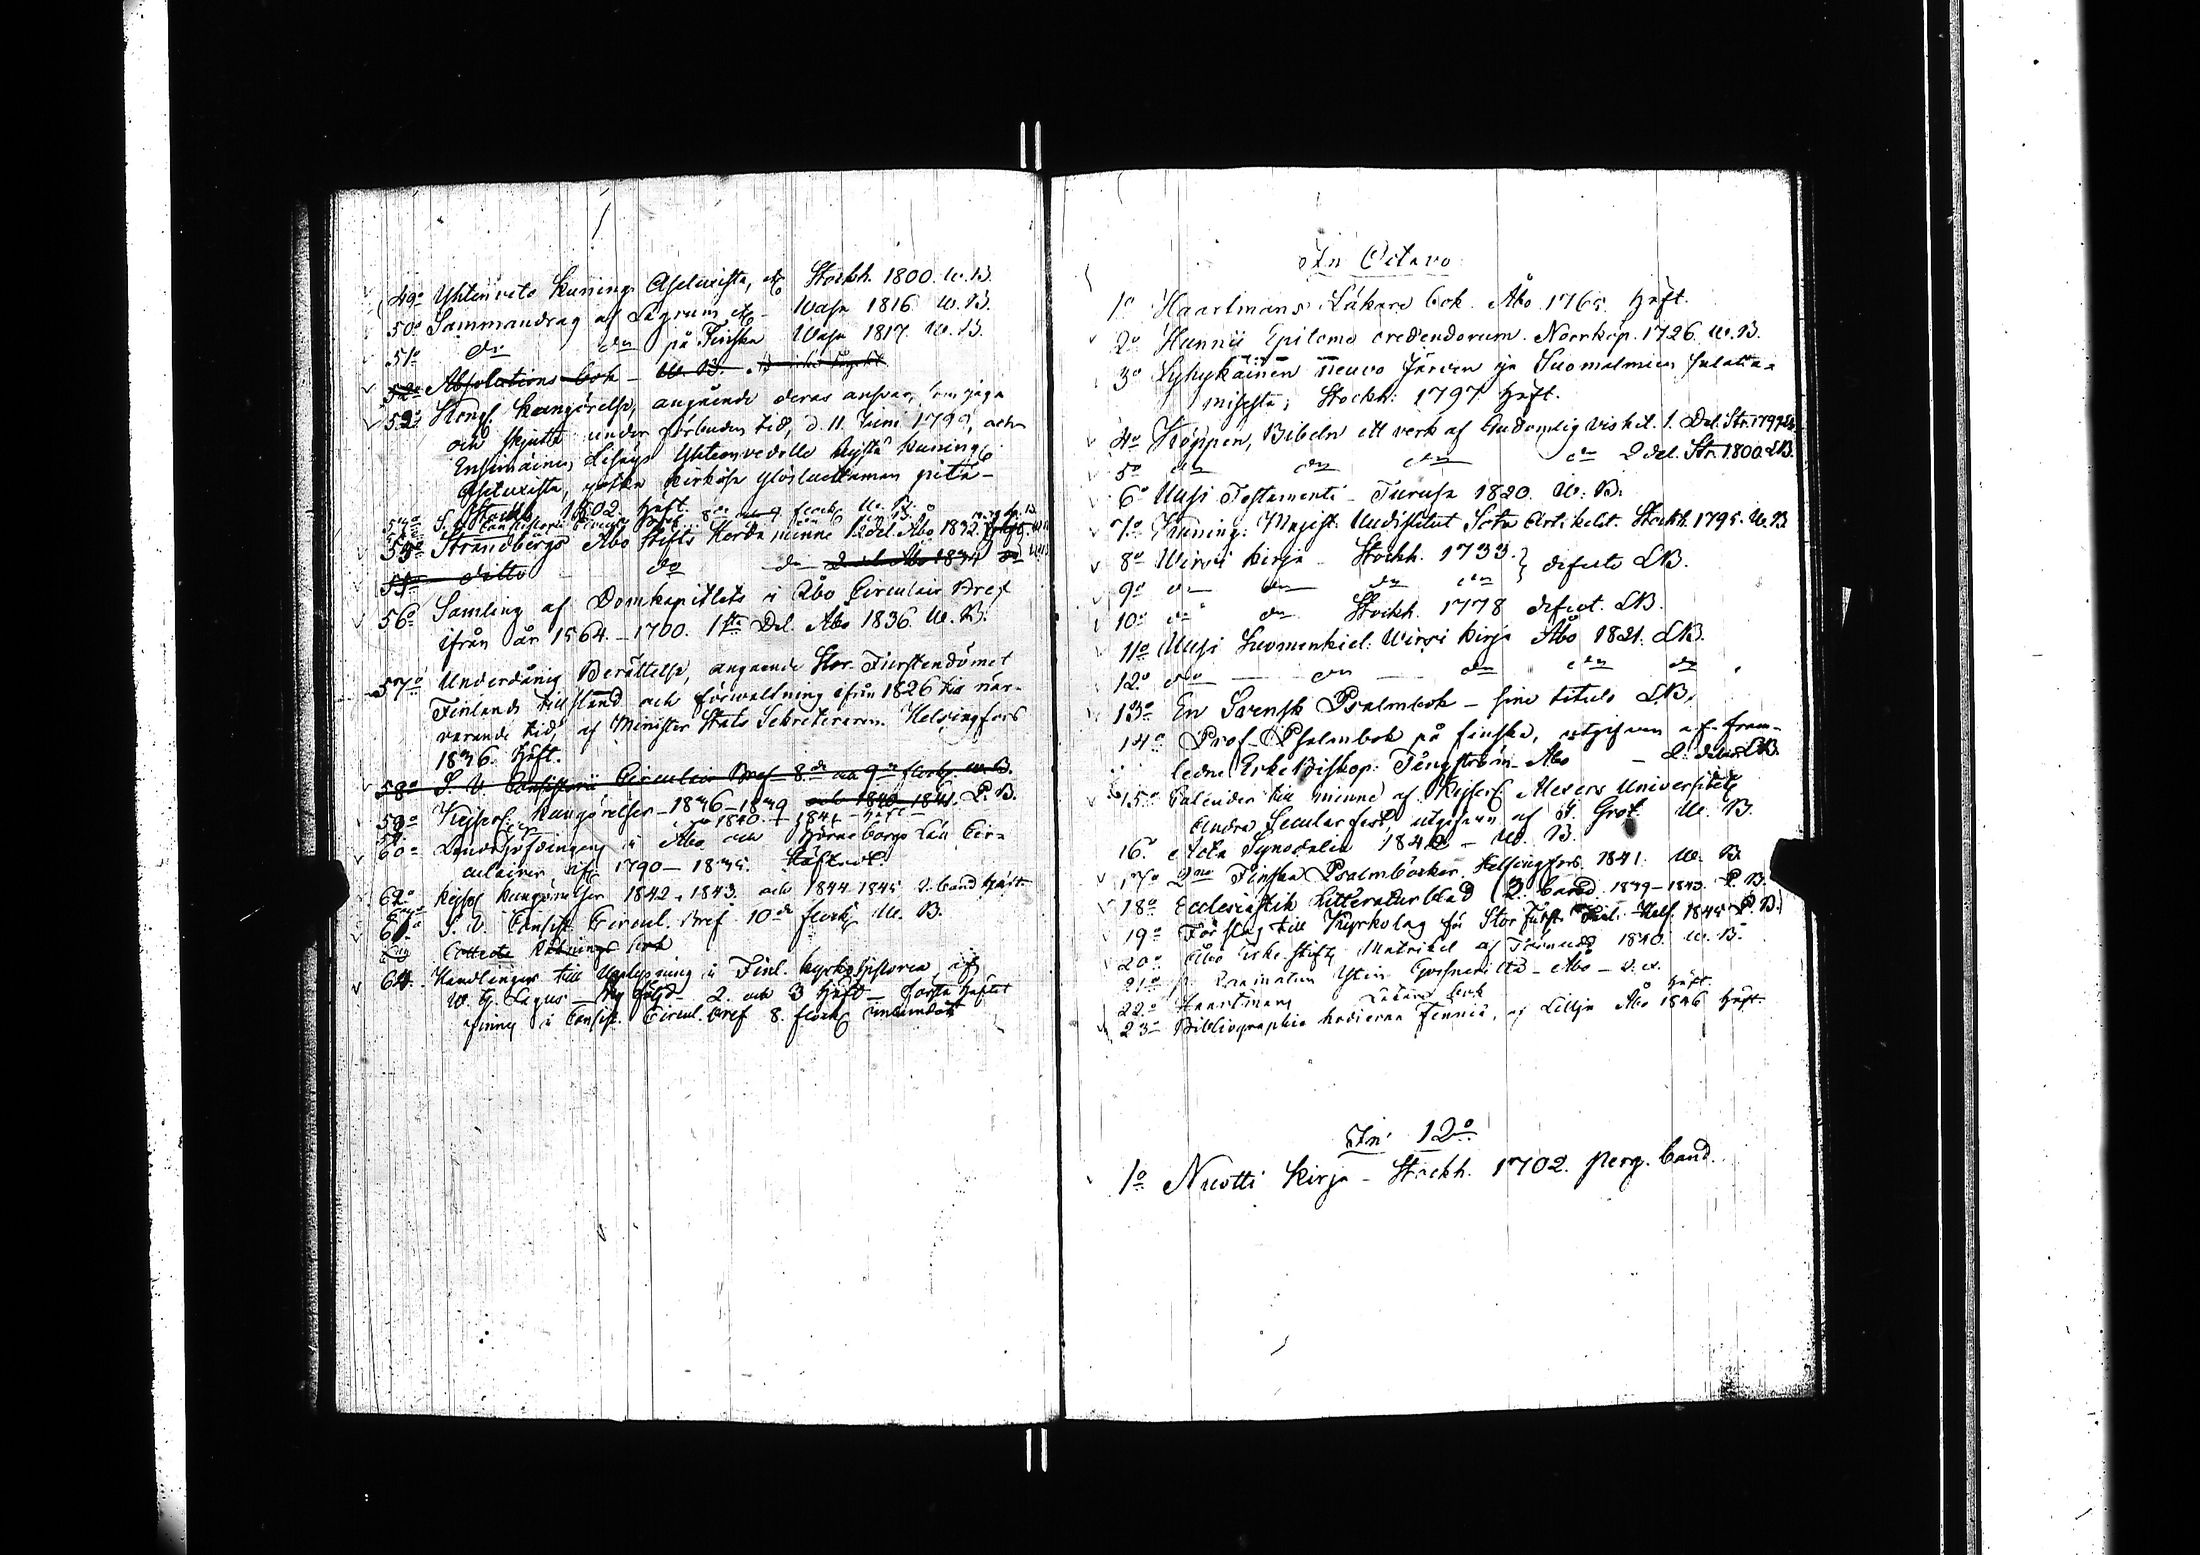 49o Yhteinvete Kuning. Asetuxista, etc. Stockh. 1800. W. B.
50o Sammandrag af Lagrum etc. Wasa 1816 W. B.
51o do do på Finska Wasa 1817. W. B.
52o Absolutions bok - W. B.
52o Kongl. Kungörelse, angående deras ansvar, som jaga
och skjuta under förbuden tid, d. 11. Juni 1799, och
Ensimäinen Lisäys Yhteenvedettu Kuning.
Asetuxista, jotka kirkosa ylösluettaman pitä-
Stockh. 1802. Häft.
54o Strandbergs Åbo Stifts Herda minne 1 del. Åbo 1832.
55o ditto do do 2 del Åbo 1834 do
56o Samling af Domkapitlets i Åbo Circulair Bref
ifrån år 1564.-1700. 1sta Del. Åbo 1836. W. B.
57o Underdånig Berättelse, angaende Stor-Furstendömet
Finlands tillstånd och förwaltning ifrån 1826 till när-
varande tid, af Minister Stats Sekreteraren. Helsingfors
1836. Häft.
58o S. V. Consistorii Circulair Bref 8de och 9de flock. W. B.
59o Kejserl. Kungörelser - 1836-1839 och 1840-1841. P. B.
60o Landshöfdingens i Åbo och Björneborgs Län Cir-
culairer, 1790-1835.
62o Kejserl Kungörelser 1842, 1843. och 1844 1845 2. band Häft
S. V. Consist. Circul. Bref 10de flock W. B.
Collecte Räknings bok
64. Handlingar till Upplysning i Finl. Kyrkohistoria af
W. G. Lagus - Ny följd - 2. och 3 Häft - första Häftet
finns i Consist. Circul. bref 8. flock
In Octavo
1o Haartmans Läkare bok. Åbo 1765. Häft.
2o Hunnii Epitome credendorum. Norrkop. 1726. W. B.
3o Lyhykäinen neuvo Järven ja Suomalmien
misesta; Stockh: 1797 Häft.
4o Köppen, Bibeln ett verk af Gudomlig vishet. 1. Del. Str. 1797
5o do do do do 2 del. Str. 1800. LB.
6o Uusi Testamenti - Turusa 1820. W. B.
7o Kuning: Majest. Uudistetut Sota Artikelit. Stockh. 1795. W. B
8o Wirsi Kirja - Stockh. 1733. } defecte LB.
9o do do do do
10o do do Stockh. 1778 defect. LB.
11o Uusi Suomenkiel. Wirsi Kirja Åbo 1821. LB.
12o do do do do do
13o En Svensk Psalmbok - sine titulo LB.
14o Prof-Psalmbok på finska, utgifven af fram-
ledne ErkeBiskop. Tengström - Åbo
15o Calender till minne af Kejserl. Alexers Universitets
Andra Secularfest, utgifven af J. Grot. W. B.
16o Acta Synodalia 1842 - W. B.
17o 2ne Finska Psalmböcker. Helsingfors 1841. W. B.
18o Ecclesiastik Litteraturblad (2. band 1839-1843. P. B.
19o Förslag till Kyrkolag för StorFurst. Finl. Helsf. 1845 P. B.
20o Åbo Erke Stifts Matrikel af 1840. W. B.
21o
22o Haartmans Läkare bok Häft.
23o Bibliographia hodierna Fennia, af Lillja Åbo 1846 Häft.
In 12o
1o Nuotti Kirja - Stockh. 1702. perg. band.